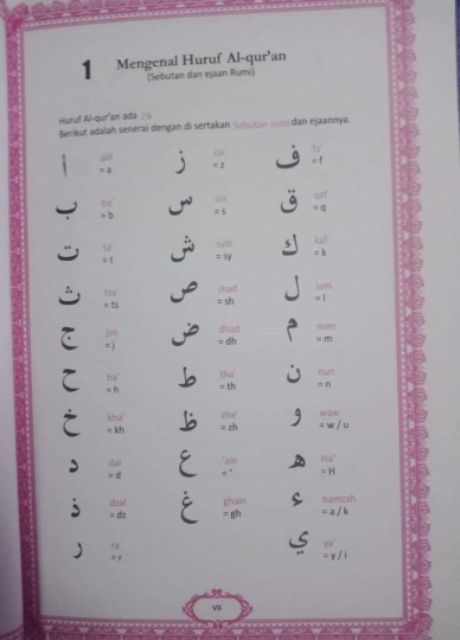 1
Mengenal Huruf Al-qur'an
(Sebutan dan ejaan Rumi)
Huruf Al-qur'an ada
Berikut adalah senerai dengan di sertakan Sebutan rumi dan ejaannya.
أ alif
= a
ب ba'
= b
ت ta'
= t
ث tsa'
= ts
ج jim
= j
ح ha'
= h
خ kha'
= kh
د dal
= d
ذ dzal
= dz
ر ra
= r
ز zai
= z
س sin
= s
ش syin
= sy
ص shad
= sh
ض dhad
= dh
ط tha'
= th
ظ zha'
= zh
ع 'ain
= '
غ ghain
= gh
ف fa'
= f
ق qaf
= q
ك kaf
= k
ل lam
= l
م mim
= m
ن nun
= n
و waw
= w / u
ه Ha'
= H
ء hamzah
= a / k
ي ya'
= y / i
vii